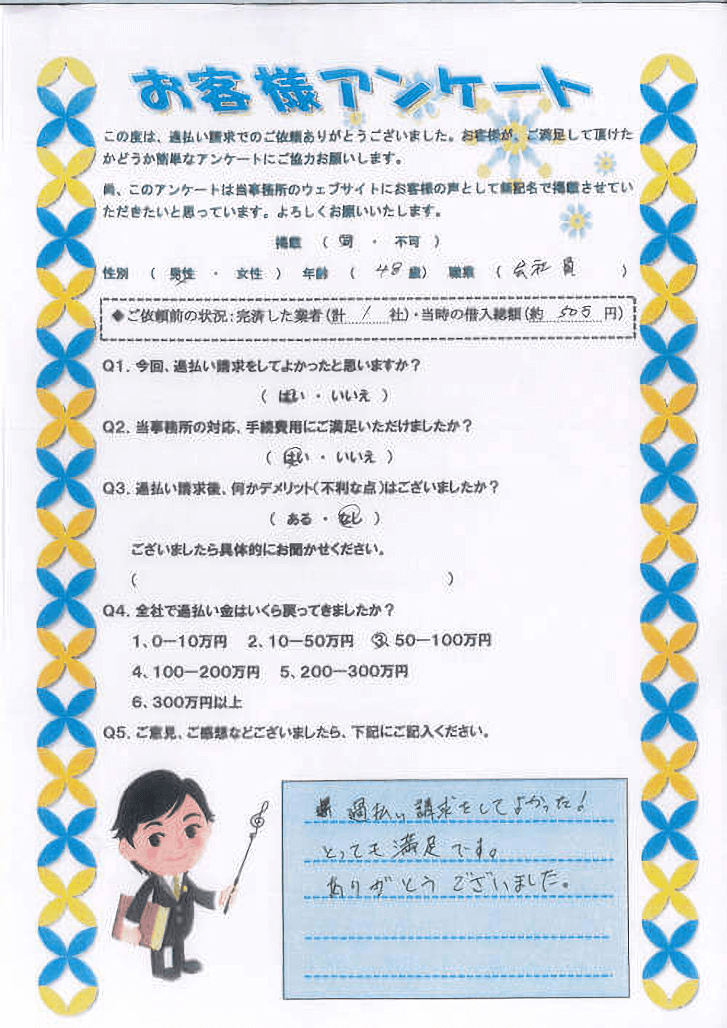 お客様アンケート
この度は、過払い請求でのご依頼ありがとうございました。お客様が、ご満足して頂けた
かどうか簡単なアンケートにご協力お願いします。
尚、このアンケートは当事務所のウェブサイトにお客様の声として無記名で掲載させてい
ただきたいと思っています。よろしくお願いいたします。
掲載 ( 可 ・ 不可 )
性別 ( 男性 ・ 女性 ) 年齢 ( 48 歳) 職業 ( 会社員 )
◆ご依頼前の状況:完済した業者(計 1 社)・当時の借入総額(約 50万 円)
Q1. 今回、過払い請求をしてよかったと思いますか?
( はい ・ いいえ )
Q2. 当事務所の対応、手続費用にご満足いただけましたか?
( はい ・ いいえ )
Q3. 過払い請求後、何かデメリット(不利な点)はございましたか?
( ある ・ なし )
ございましたら具体的にお聞かせください。
( )
Q4. 全社で過払い金はいくら戻ってきましたか?
1、0－10万円 2、10－50万円 3、50－100万円
4、100－200万円 5、200－300万円
6、300万円以上
Q5. ご意見、ご感想などございましたら、下記にご記入ください。
過払い請求をしてよかった!
とっても満足です。
ありがとうございました。